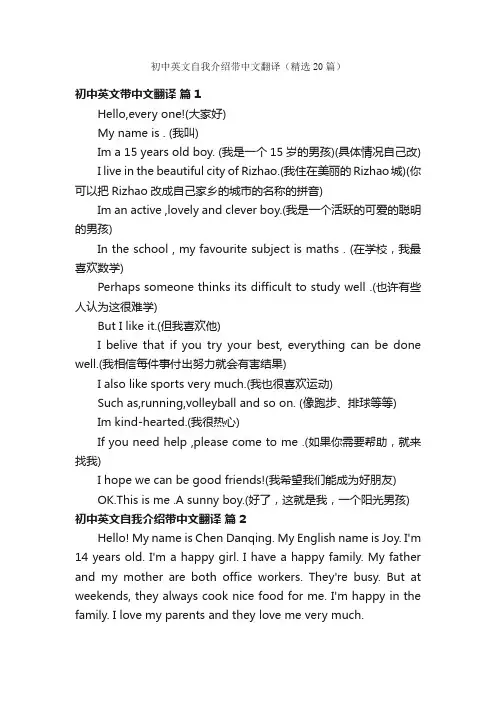 初中英文自我介绍带中文翻译（精选20篇）
初中英文带中文翻译 篇1
Hello,every one!(大家好)
My name is . (我叫)
Im a 15 years old boy. (我是一个15岁的男孩)(具体情况自己改)
I live in the beautiful city of Rizhao.(我住在美丽的Rizhao城)(你
可以把Rizhao改成自己家乡的城市的名称的拼音)
Im an active ,lovely and clever boy.(我是一个活跃的可爱的聪明
的男孩)
In the school , my favourite subject is maths . (在学校，我最
喜欢数学)
Perhaps someone thinks its difficult to study well .(也许有些
人认为这很难学)
But I like it.(但我喜欢他)
I belive that if you try your best, everything can be done
well.(我相信每件事付出努力就会有害结果)
I also like sports very much.(我也很喜欢运动)
Such as,running,volleyball and so on. (像跑步、排球等等)
Im kind-hearted.(我很热心)
If you need help ,please come to me .(如果你需要帮助，就来
找我)
I hope we can be good friends!(我希望我们能成为好朋友)
OK.This is me .A sunny boy.(好了，这就是我，一个阳光男孩)
初中英文自我介绍带中文翻译 篇2
Hello! My name is Chen Danqing. My English name is Joy. I'm
14 years old. I'm a happy girl. I have a happy family. My father
and my mother are both office workers. They're busy. But at
weekends, they always cook nice food for me. I'm happy in the
family. I love my parents and they love me very much.